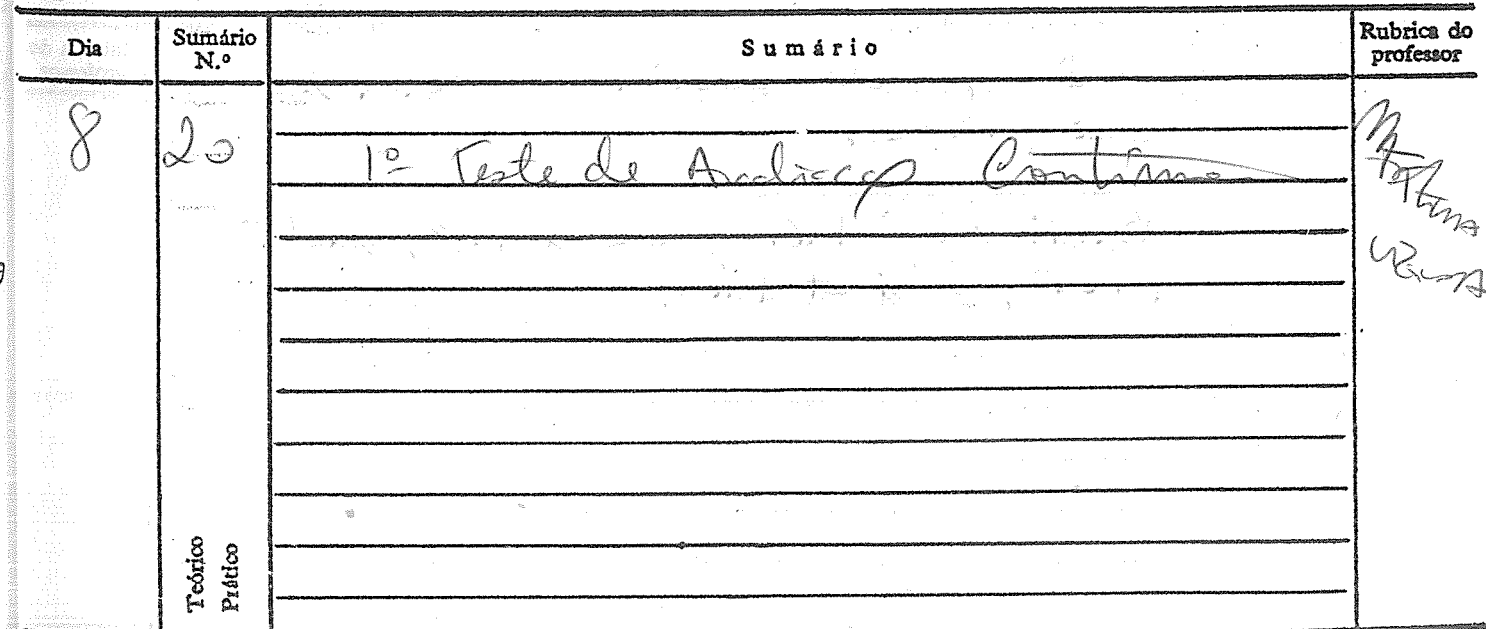 Dia
Sumário
N.º
Sumário
Rubrica do
professor
8
20
1º Teste de Avaliação Contínua
Teórico
Prático